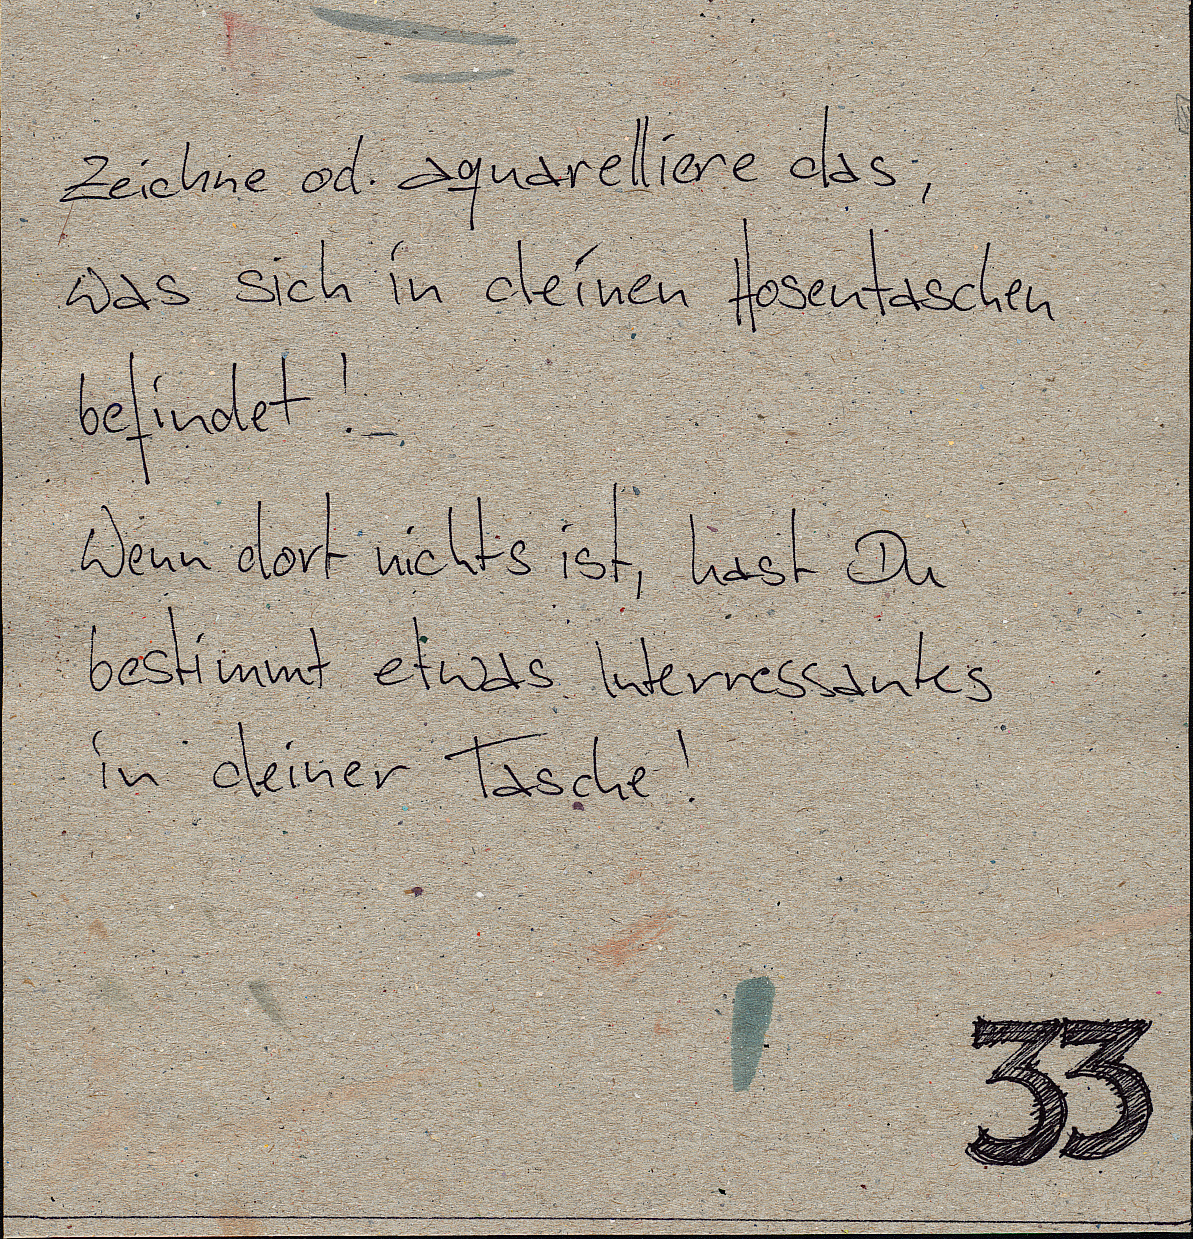 Zeichne od. aquarelliere das,
was sich in deinen Hosentaschen
befindet!_
Wenn dort nichts ist, hast Du
bestimmt etwas Interressantes
in deiner Tasche!
33